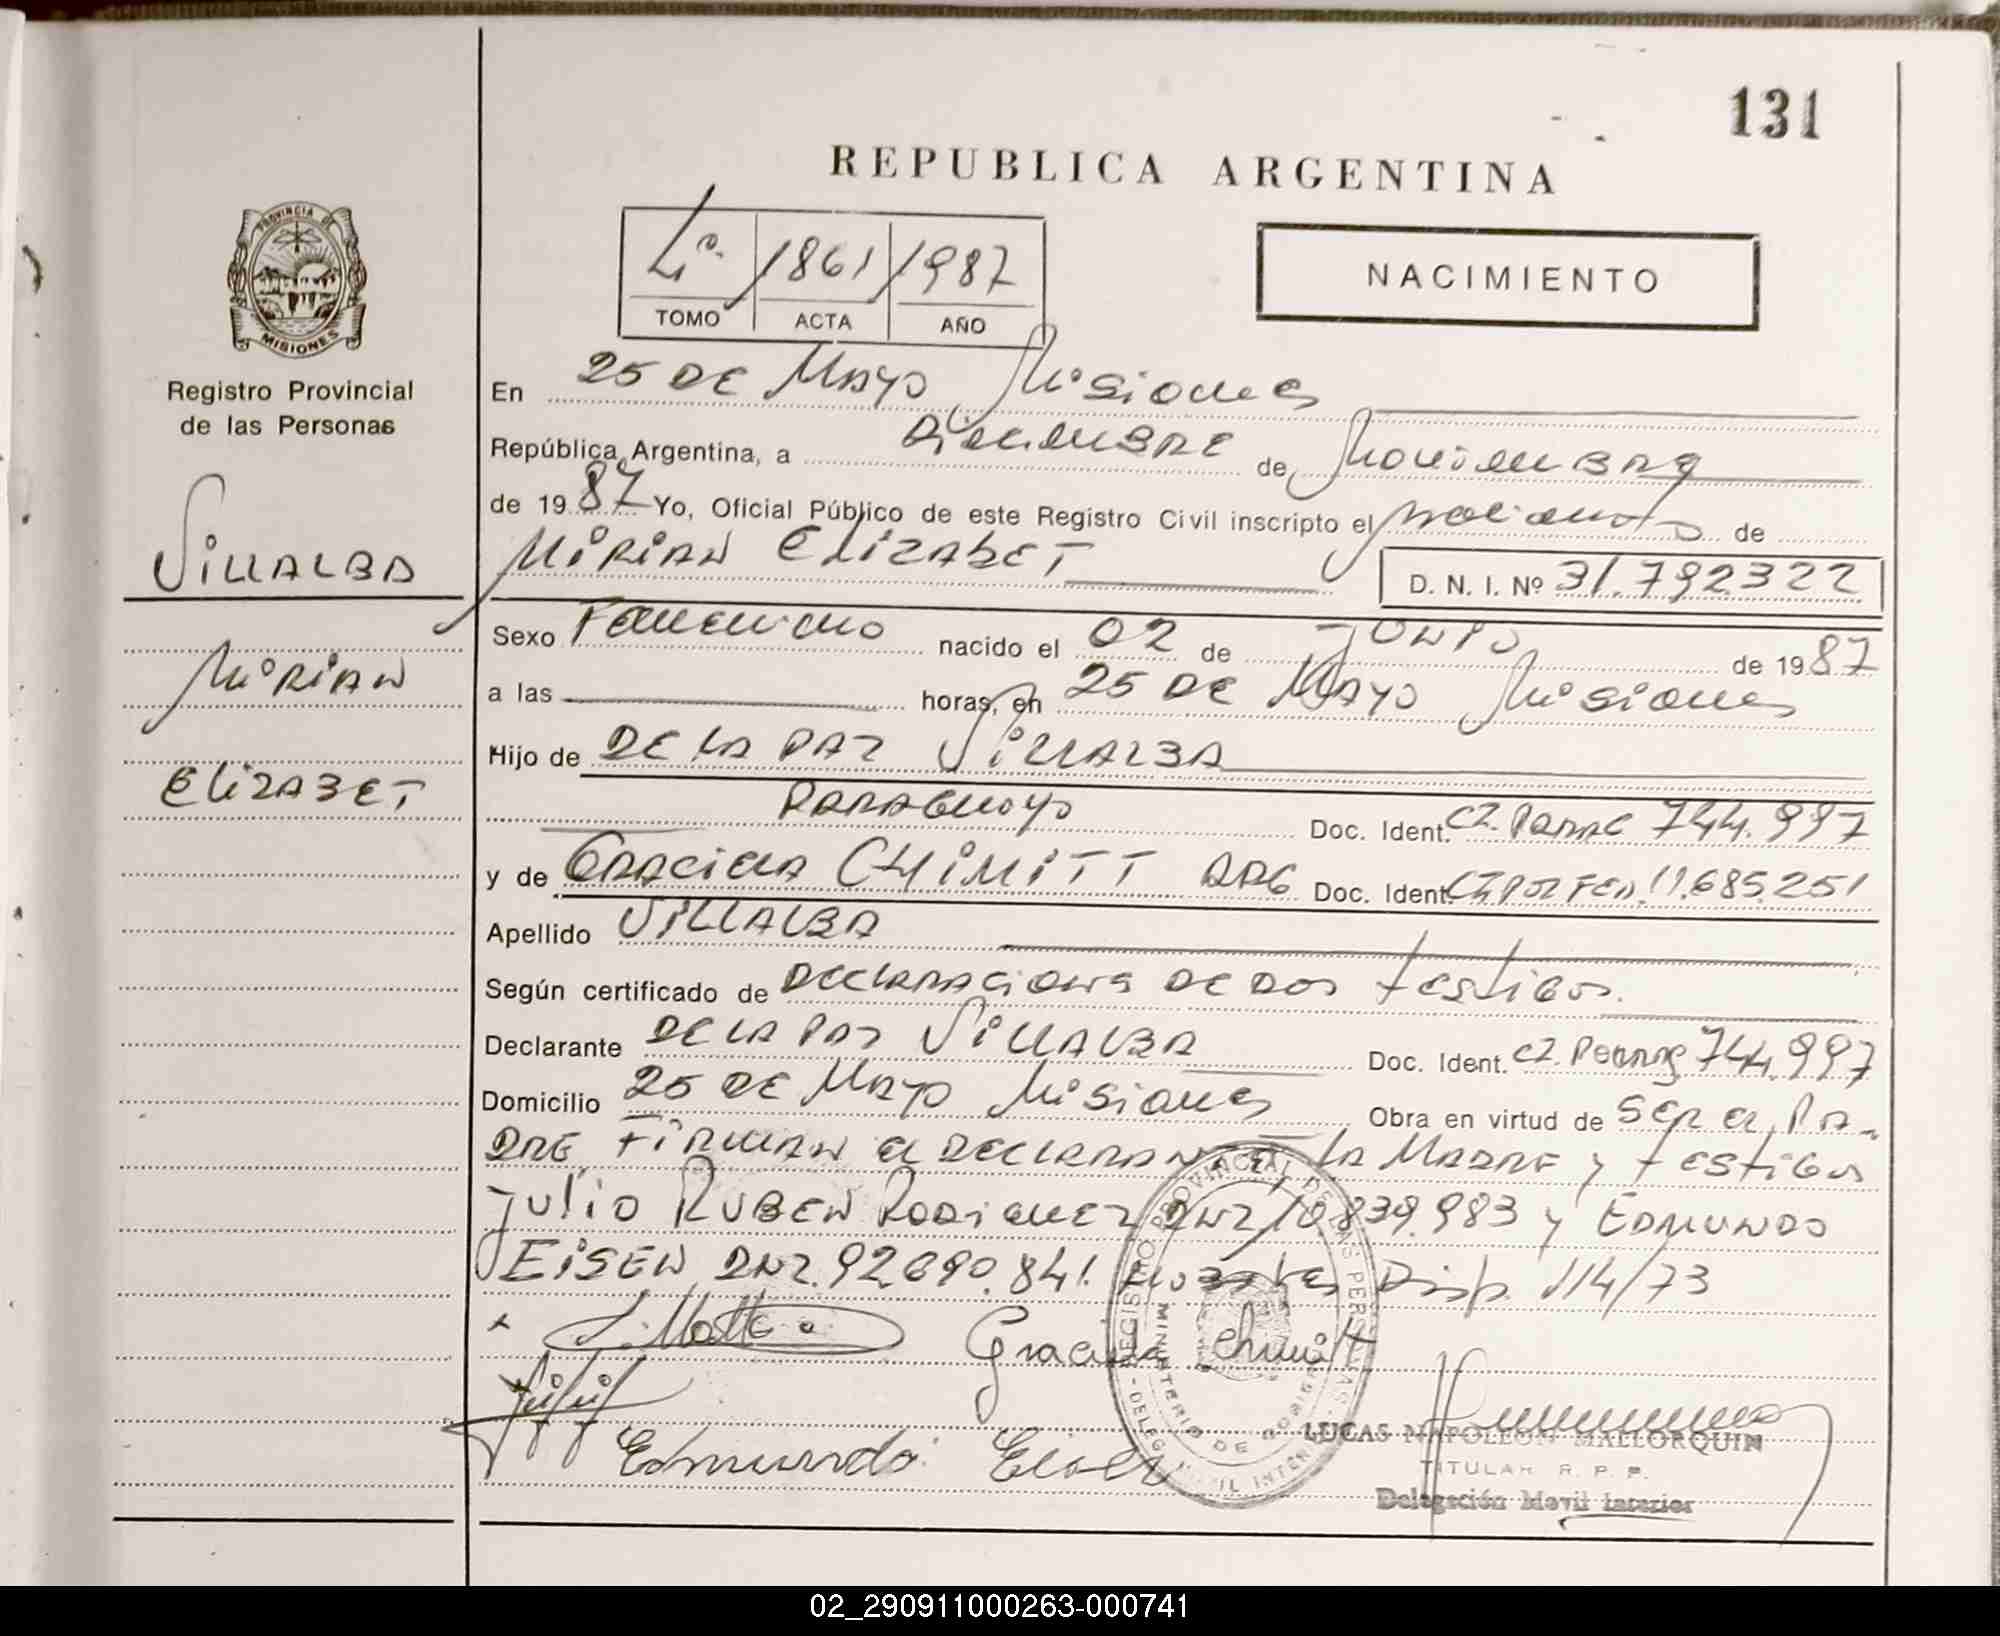 131
REPUBLICA ARGENTINA
4º 1861 1987
TOMO ACTA AÑO
NACIMIENTO
PROVINCIA DE
MISIONES
Registro Provincial
de las Personas
VILLALBA
MIRIAN
ELIZABET
En 25 DE MAYO MISIONES
República Argentina, a de NOVIEMBRE
de 1987 Yo, Oficial Público de este Registro Civil inscripto el nacimiento de
MIRIAN ELIZABET D. N. I. Nº 31.792322
Sexo Femenino nacido el 02 de JUNIO de 1987
a las horas, en 25 DE MAYO MISIONES
Hijo de DE LA PAZ VILLALBA
PARAGUAYO Doc. Ident. CI. 744.997
y de GRACIELA CHIMITT ARG Doc. Ident. CI POL FED. 11.685.251
Apellido VILLALBA
Según certificado de DECLARACIONES DE DOS TESTIGOS.
Declarante DE LA PAZ VILLALBA Doc. Ident. CI. 744.997
Domicilio 25 DE MAYO MISIONES Obra en virtud de SER EL PA-
DRE FIRMAN EL DECLARANTE LA MADRE y TESTIGOS
JULIO RUBEN RODRIGUEZ DNI 10.839.983 y EDMUNDO
EISEN DNI. 92.690.841. Disp. 114/73
Graciela Chimitt
Edmundo Eisen
REGISTRO PROVINCIAL DE LAS PERSONAS
MINISTERIO DE GOBIERNO
LUCAS NAPOLEON MALLORQUIN
TITULAR R. P. P.
Delegación Movil Interior
02_290911000263-000741